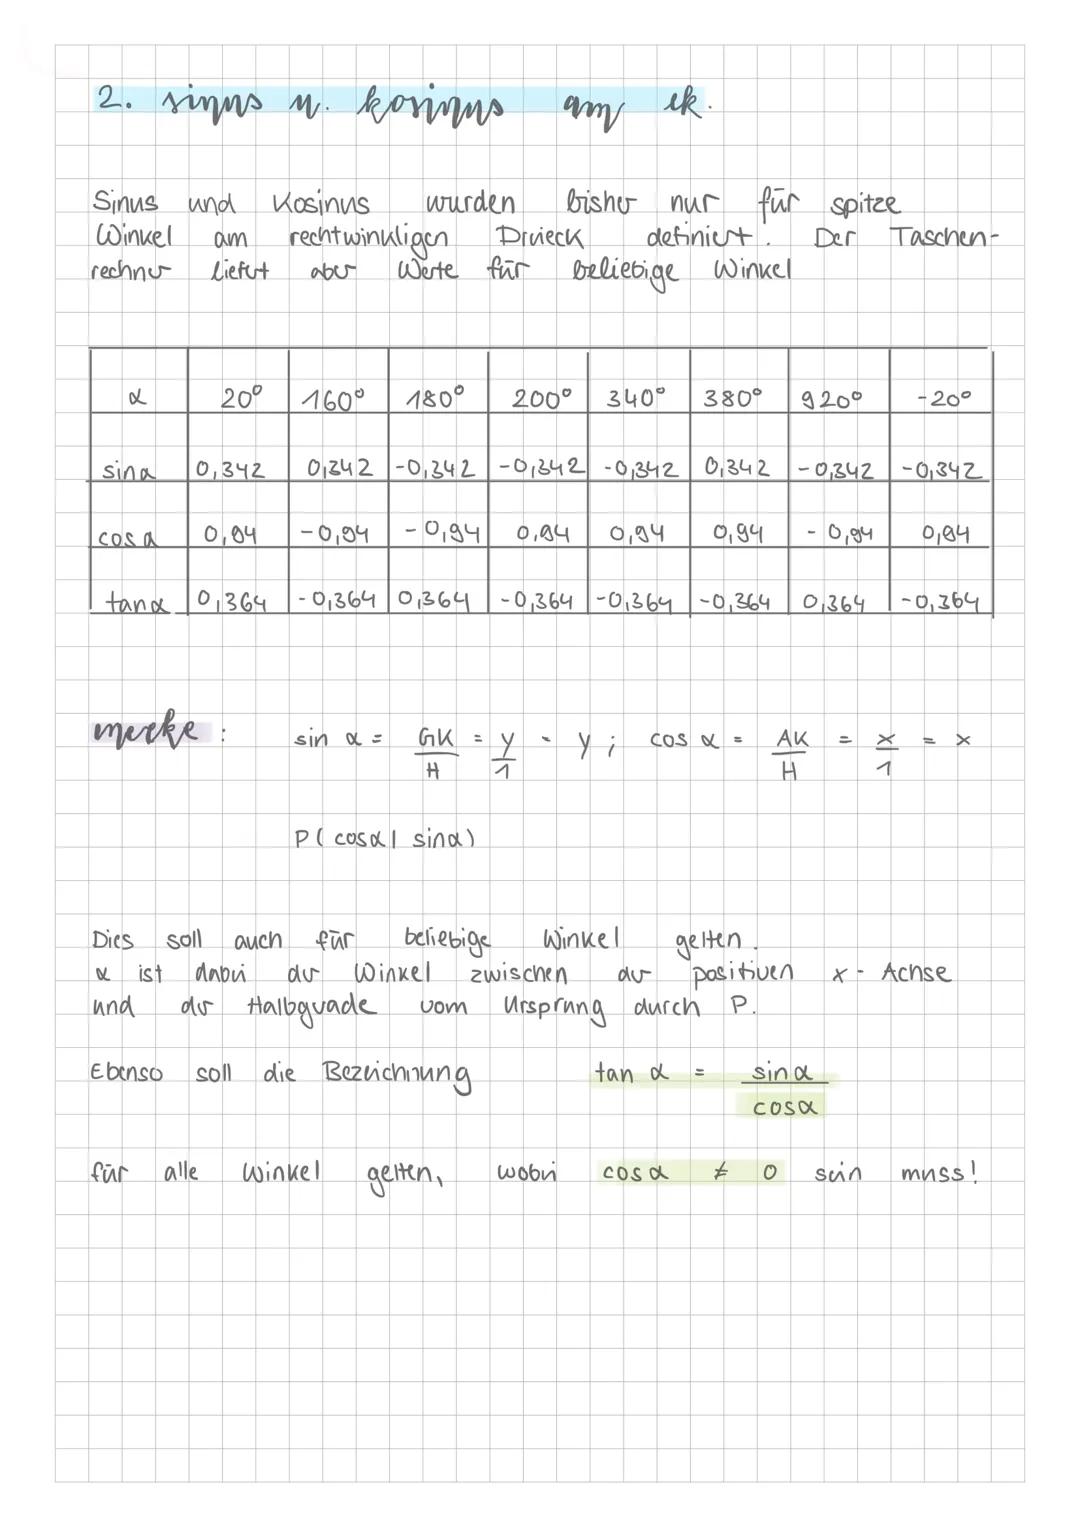 2. sinus u. kosinus am ek.
Sinus und Kosinus wurden bisher nur für spitze
Winkel am rechtwinkligen Dreieck definiert. Der Taschen-
rechner liefert aber Werte für beliebige Winkel
α 20° 160° 180° 200° 340° 380° 920° -20°
sinα 0,342 0,342 -0,342 -0,342 -0,342 0,342 -0,342 -0,342
cosα 0,94 -0,94 -0,94 0,94 0,94 0,94 -0,94 0,94
tanα 0,364 -0,364 0,364 -0,364 -0,364 -0,364 0,364 -0,364
merke: sin α = GK/H = y/1 = y; cos α = AK/H = x/1 = x
P( cosα | sinα)
Dies soll auch für beliebige Winkel gelten.
α ist dabei der Winkel zwischen der positiven x- Achse
und der Halbgerade vom Ursprung durch P.
Ebenso soll die Bezeichnung tan α = sinα/cosα
für alle Winkel gelten, wobei cosα ≠ 0 sein muss!